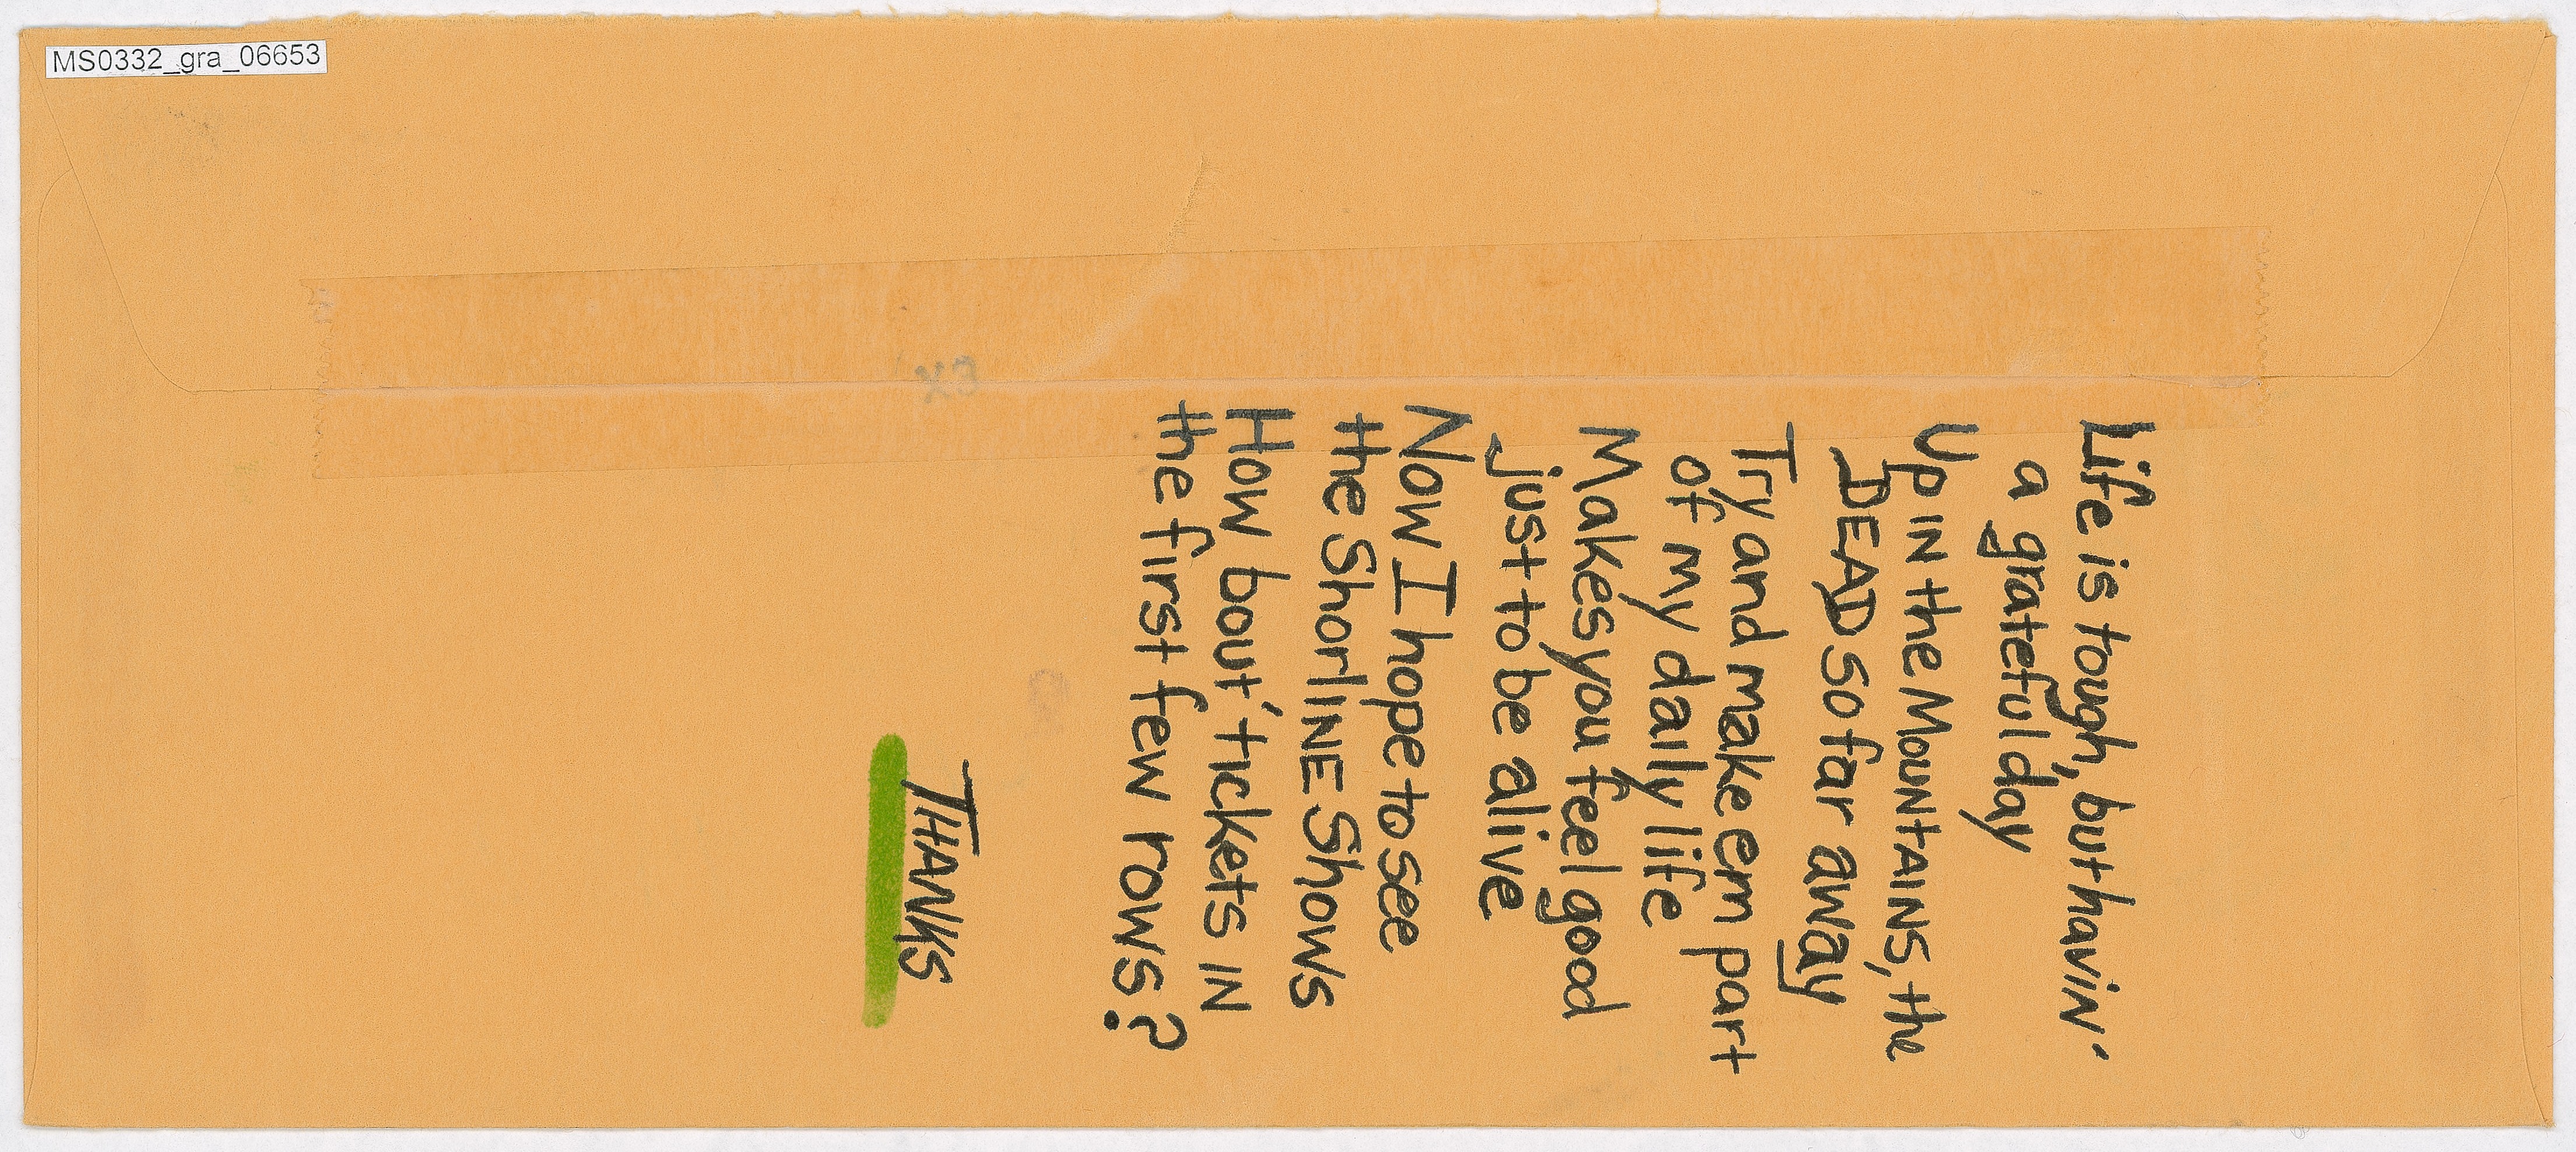 MS0332_gra_06653
Life is tough, but havin'
a grateful day
Up in the Mountains, the
DEAD so far away
Try and make em part
of my daily life
Makes you feel good
just to be alive
Now I hope to see
the ShorlINE Shows
How bout' tickets IN
the first few rows?
THANKS